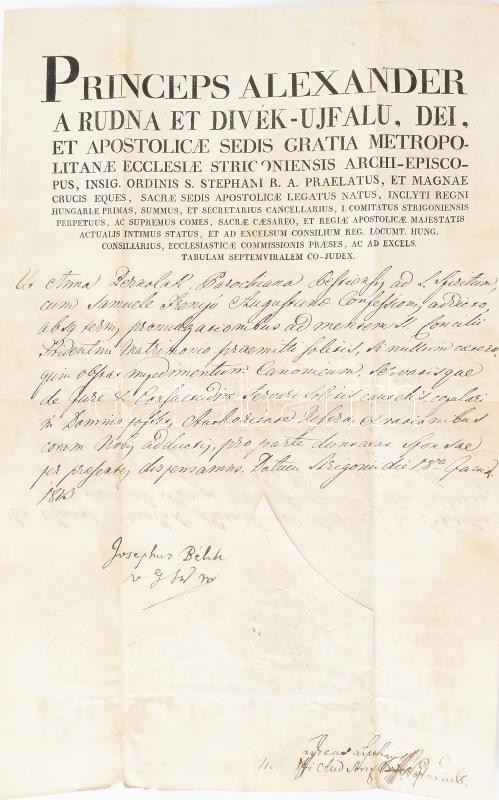 PRINCEPS ALEXANDER
A RUDNA ET DIVÉK-UJFALU, DEI,
ET APOSTOLICÆ SEDIS GRATIA METROPO-
LITANÆ ECCLESIÆ STRIGONIENSIS ARCHI-EPISCO-
PUS, INSIG. ORDINIS S. STEPHANI R. A. PRAELATUS, ET MAGNAE
CRUCIS EQUES, SACRÆ SEDIS APOSTOLICÆ LEGATUS NATUS, INCLYTI REGNI
HUNGARIÆ PRIMAS, SUMMUS, ET SECRETARIUS CANCELLARIUS, I. COMITATUS STRIGONIENSIS
PERPETUUS, AC SUPREMUS COMES, SACRÆ CÆSAREO, ET REGIÆ APOSTOLICÆ MAJESTATIS
ACTUALIS INTIMUS STATUS, ET AD EXCELSUM CONSILIUM REG. LOCUMT. HUNG.
CONSILIARIUS, ECCLESIASTICÆ COMMISSIONIS PRÆSES, AC AD EXCELS.
TABULAM SEPTEMVIRALEM CO-JUDEX.
Ut Anna Parochiana Pestiensis ad S. Spiritum,
cum Samuele Augustanae Confessioni addicto,
absq ternis promulgationibus ad mentem S. Concilii
Tridentini Matrimonio praemitti solitis, si nullum caeteroquin
obstat impedimentum Canonicum, servatisque
de Jure et Consuetudine servari solitis cautelis copulari
in Domino possit, Authoritate Nostra, ex rationibus
coram Nobis adductis, pro parte duntaxat sponsae
per praesentes dispensamus. Datum Strigonii die 18va
1823
Josephus Bélik